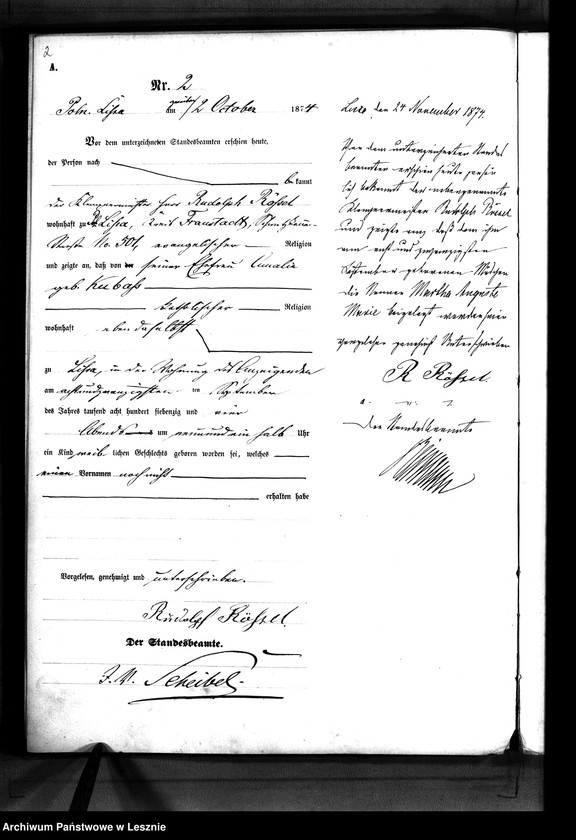 2
A.
Nr. 2
Poln. Lissa am zweiten/2 October 1874
Vor dem unterzeichneten Standesbeamten erschien heute,
der Person nach
bekannt
der Klempnermeister Herr Rudolph Rößel
wohnhaft zu P. Lissa, Kreis Fraustadt,
Straße No. 301, evangelischer Religion
und zeigte an, daß von der seiner Ehefrau Amalie
geb. Kubaß
katholischer Religion
wohnhaft ebendaselbst
zu Lissa, in der Wohnung des Anzeigenden
am achtundzwanzigsten ten September
des Jahres tausend acht hundert siebenzig und vier
Abends um neunundeinhalb Uhr
ein Kind weiblichen Geschlechts geboren worden sei, welches
einen Vornamen noch nicht
erhalten habe
Vorgelesen, genehmigt und unterschrieben.
Rudolph Rößel.
Der Standesbeamte.
J. V. Scheibel
Lissa, den 24 November 1874.
Vor dem unterzeichneten Standes
beamten erschien heute, persön
lich bekannt der
Klempnermeister Rudolph Rössel
und zeigte an, daß dem ihm
am
September geborenen Mädchen
die Namen Martha Auguste
Marie beigelegt worden seien
Vorgelesen genehmigt unterschrieben
R Rößel.
Der Standesbeamte
Archiwum Państwowe w Lesznie